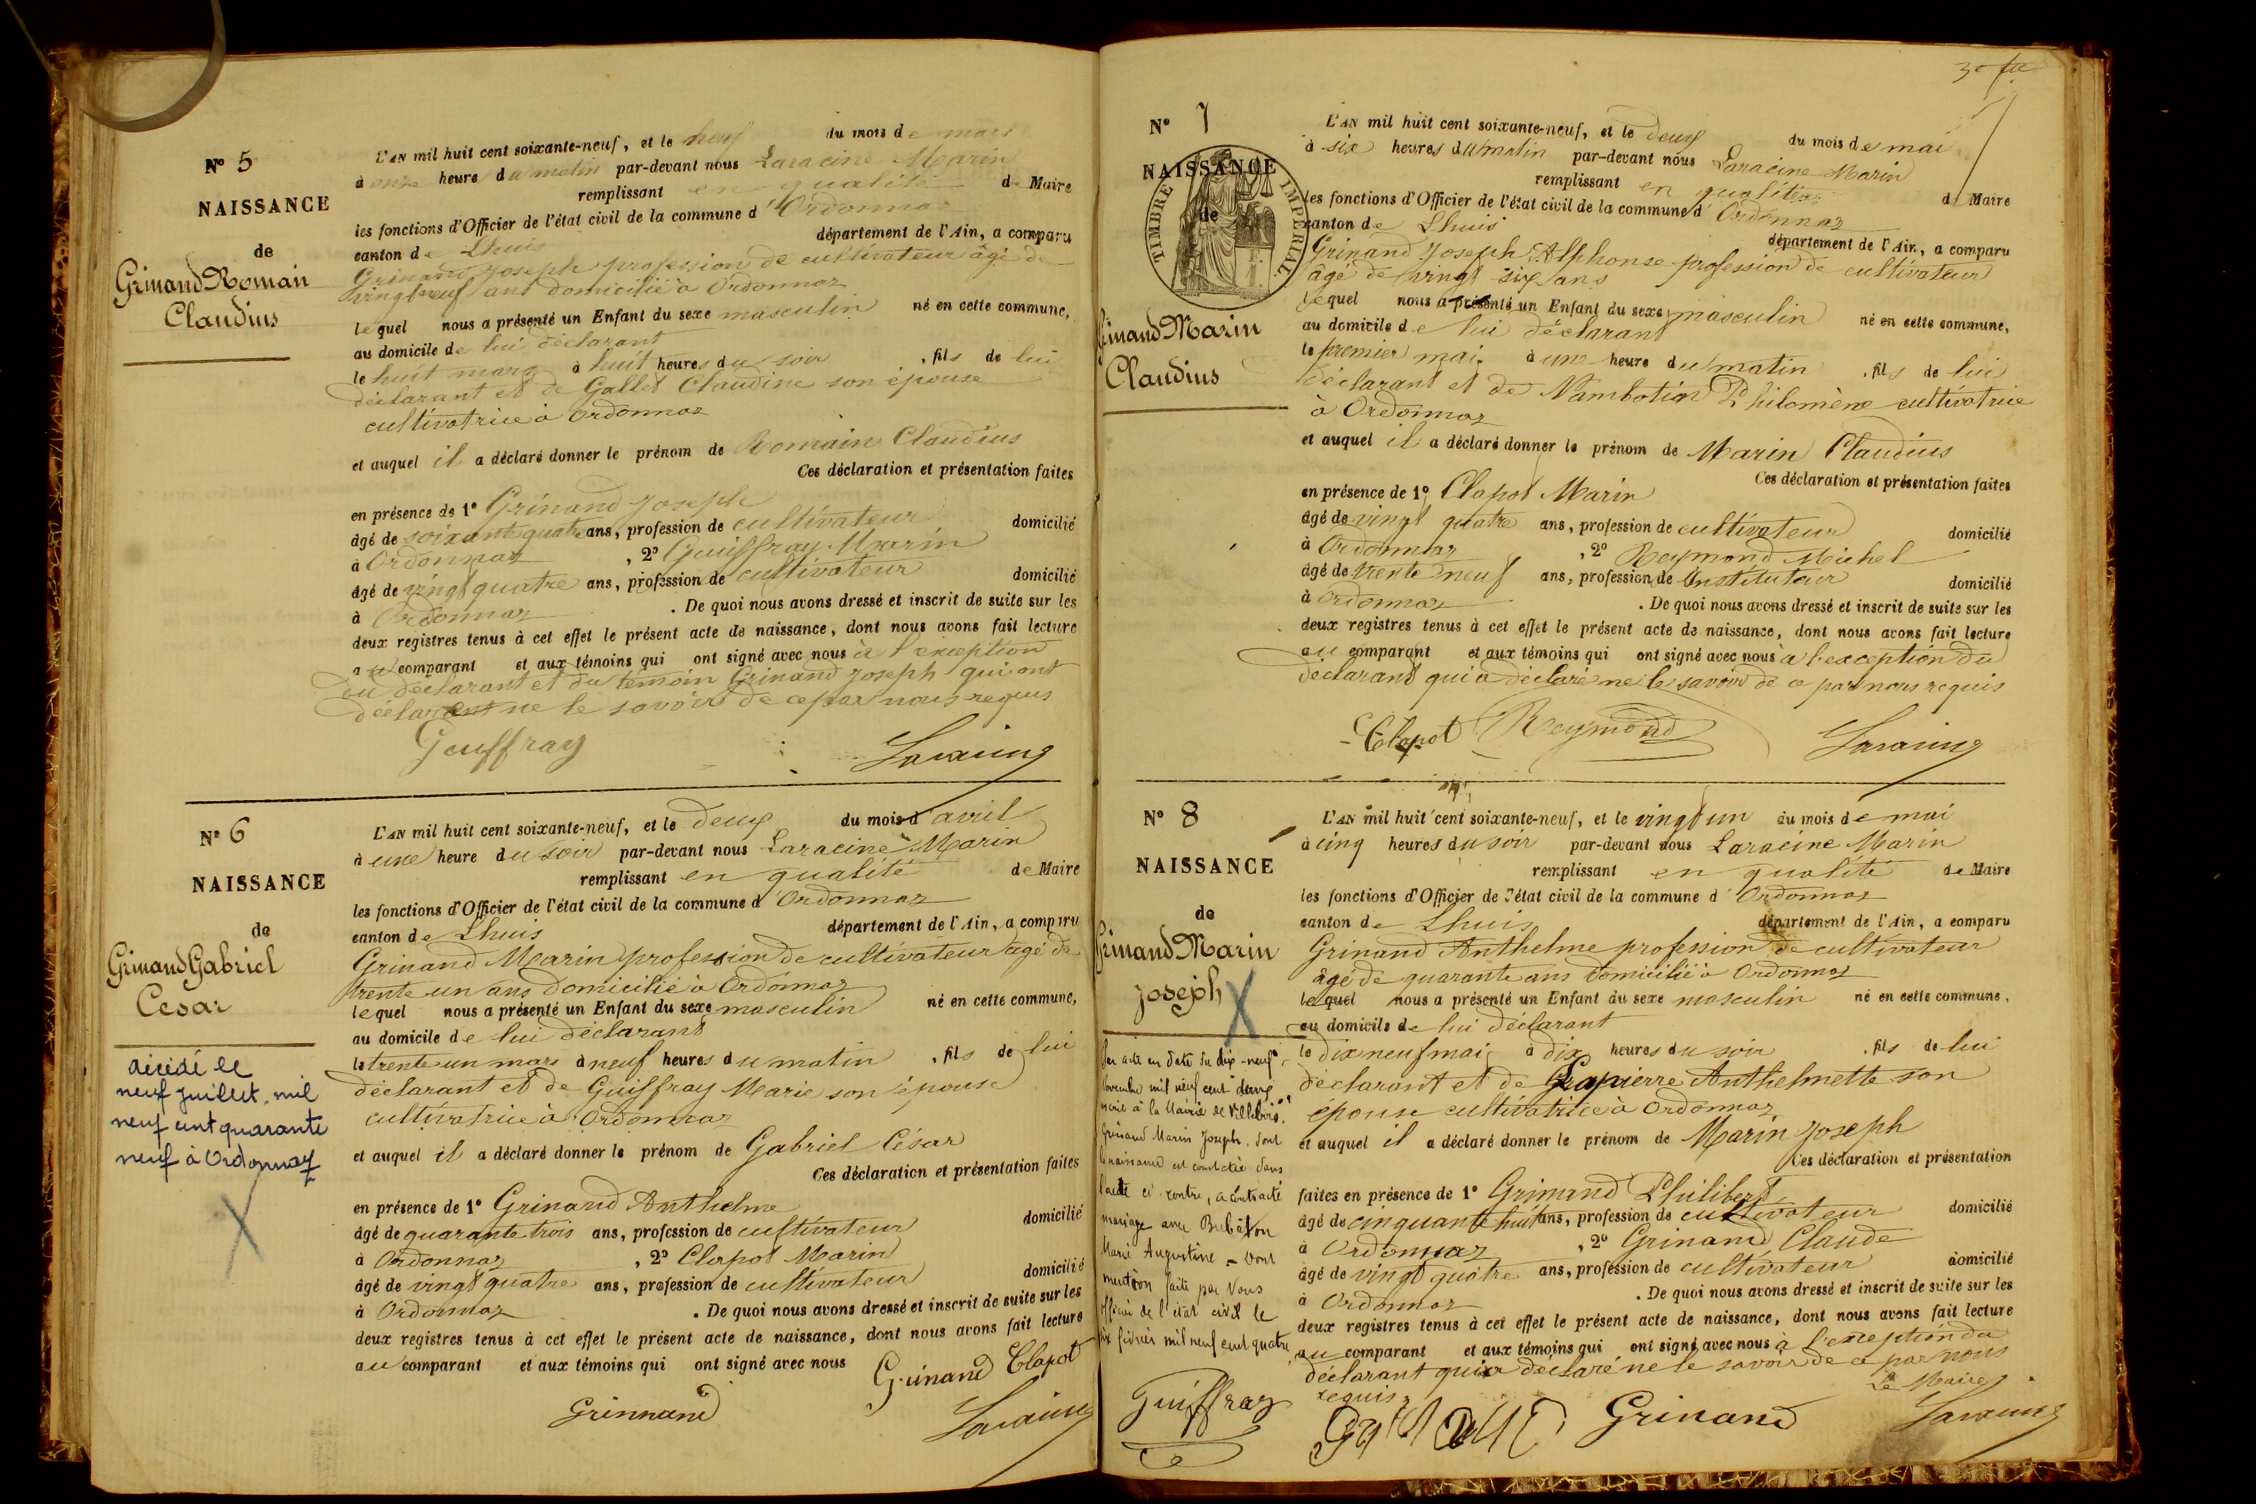 N° 5
NAISSANCE
de
Grinand Romain
Claudius
L'AN mil huit cent soixante-neuf, et le neuf du mois de mars
à onze heure du matin par-devant nous Laracine Marin
remplissant en qualité de Maire
les fonctions d'Officier de l'état civil de la commune d'Ordonnaz
canton de Lhuis département de l'Ain, a comparu
Grinand Joseph profession de cultivateur âgé de
vingt neuf ans domicilié à Ordonnaz
lequel nous a présenté un Enfant du sexe masculin né en cette commune,
au domicile de lui déclarant
le huit mars à huit heures du soir , fils de lui
déclarant et de Gallet Claudine son épouse
cultivatrice à Ordonnaz
et auquel il a déclaré donner le prénom de Romain Claudius
Ces déclaration et présentation faites
en présence de 1° Grinand Joseph
âgé de soixante quatre ans, profession de cultivateur domicilié
à Ordonnaz , 2° Guiffray Marin
âgé de vingt quatre ans, profession de cultivateur domicilié
à Ordonnaz . De quoi nous avons dressé et inscrit de suite sur les
deux registres tenus à cet effet le présent acte de naissance, dont nous avons fait lecture
au comparant et aux témoins qui ont signé avec nous à l'exception
du déclarant et du témoin Grinand Joseph qui ont
déclaré ne le savoir de ce par nous requis
Geuffray Laracine
N° 6
NAISSANCE
de
Grinand Gabriel
Cesar
décédé le
neuf juillet mil
neuf cent quarante
neuf à Ordonnaz
L'AN mil huit cent soixante-neuf, et le deux du mois d'avril
à une heure du soir par-devant nous Laracine Marin
remplissant en qualité de Maire
les fonctions d'Officier de l'état civil de la commune d'Ordonnaz
canton de Lhuis département de l'Ain, a comparu
Grinand Marin profession de cultivateur âgé de
trente un ans domicilié à Ordonnaz
lequel nous a présenté un Enfant du sexe masculin né en cette commune,
au domicile de lui déclarant
le trente un mars à neuf heures du matin , fils de lui
déclarant et de Guiffray Marie son épouse
cultivatrice à Ordonnaz
et auquel il a déclaré donner le prénom de Gabriel César
Ces déclaration et présentation faites
en présence de 1° Grinand Anthelme
âgé de quarante trois ans, profession de cultivateur domicilié
à Ordonnaz , 2° Clapot Marin
âgé de vingt quatre ans, profession de cultivateur domicilié
à Ordonnaz . De quoi nous avons dressé et inscrit de suite sur les
deux registres tenus à cet effet le présent acte de naissance, dont nous avons fait lecture
au comparant et aux témoins qui ont signé avec nous
Grinand Clapot
Grinnand Laracine
N° 7
NAISSANCE
de
TIMBRE IMPERIAL
Grinand Marin
Claudius
L'AN mil huit cent soixante-neuf, et le deux du mois de mai
à six heures du matin par-devant nous Laracine Marin
remplissant en qualité de Maire
les fonctions d'Officier de l'état civil de la commune d'Ordonnaz
canton de Lhuis département de l'Ain, a comparu
Grinand Joseph Alphonse profession de cultivateur
âgé de vingt six ans
lequel nous a présenté un Enfant du sexe masculin né en cette commune,
au domicile de lui déclarant
le premier mai à une heure du matin , fils de lui
déclarant et de Nambotin Philomène cultivatrice
à Ordonnaz
et auquel il a déclaré donner le prénom de Marin Claudius
Ces déclaration et présentation faites
en présence de 1° Clapot Marin
âgé de vingt quatre ans, profession de cultivateur domicilié
à Ordonnaz , 2° Reymond Michel
âgé de trente neuf ans, profession de Instituteur domicilié
à Ordonnaz . De quoi nous avons dressé et inscrit de suite sur les
deux registres tenus à cet effet le présent acte de naissance, dont nous avons fait lecture
au comparant et aux témoins qui ont signé avec nous à l'exception du
déclarant qui a déclaré ne le savoir de ce par nous requis
Clapot Reymond Laracine
N° 8
NAISSANCE
de
Grinand Marin
Joseph
Par acte en date du dix-neuf
novembre mil neuf cent deux
dressé à la Mairie de Villebois,
Grinand Marin Joseph, dont
la naissance est constatée dans
l'acte ci contre, a contracté
mariage avec
Marie Augustine - Dont
mention faite par Nous
officier de l'état civil le
six février mil neuf cent quatre
Guiffray
L'AN mil huit cent soixante-neuf, et le vingt un du mois de mai
à cinq heures du soir par-devant nous Laracine Marin
remplissant en qualité de Maire
les fonctions d'Officier de l'état civil de la commune d'Ordonnaz
canton de Lhuis département de l'Ain, a comparu
Grinand Anthelme profession de cultivateur
âgé de quarante ans domicilié à Ordonnaz
lequel nous a présenté un Enfant du sexe masculin né en cette commune,
au domicile de lui déclarant
le dix neuf mai à dix heures du soir , fils de lui
déclarant et de Grapierre Anthelmette son
épouse cultivatrice à Ordonnaz
et auquel il a déclaré donner le prénom de Marin Joseph
Ces déclaration et présentation
faites en présence de 1° Grinand Philibert
âgé de cinquante huit ans, profession de cultivateur domicilié
à Ordonnaz , 2° Grinand Claude
âgé de vingt quatre ans, profession de cultivateur domicilié
à Ordonnaz . De quoi nous avons dressé et inscrit de suite sur les
deux registres tenus à cet effet le présent acte de naissance, dont nous avons fait lecture
au comparant et aux témoins qui ont signé avec nous à l'exception du
déclarant qui a déclaré ne le savoir de ce par nous
requis Le Maire
Grinand Laracine